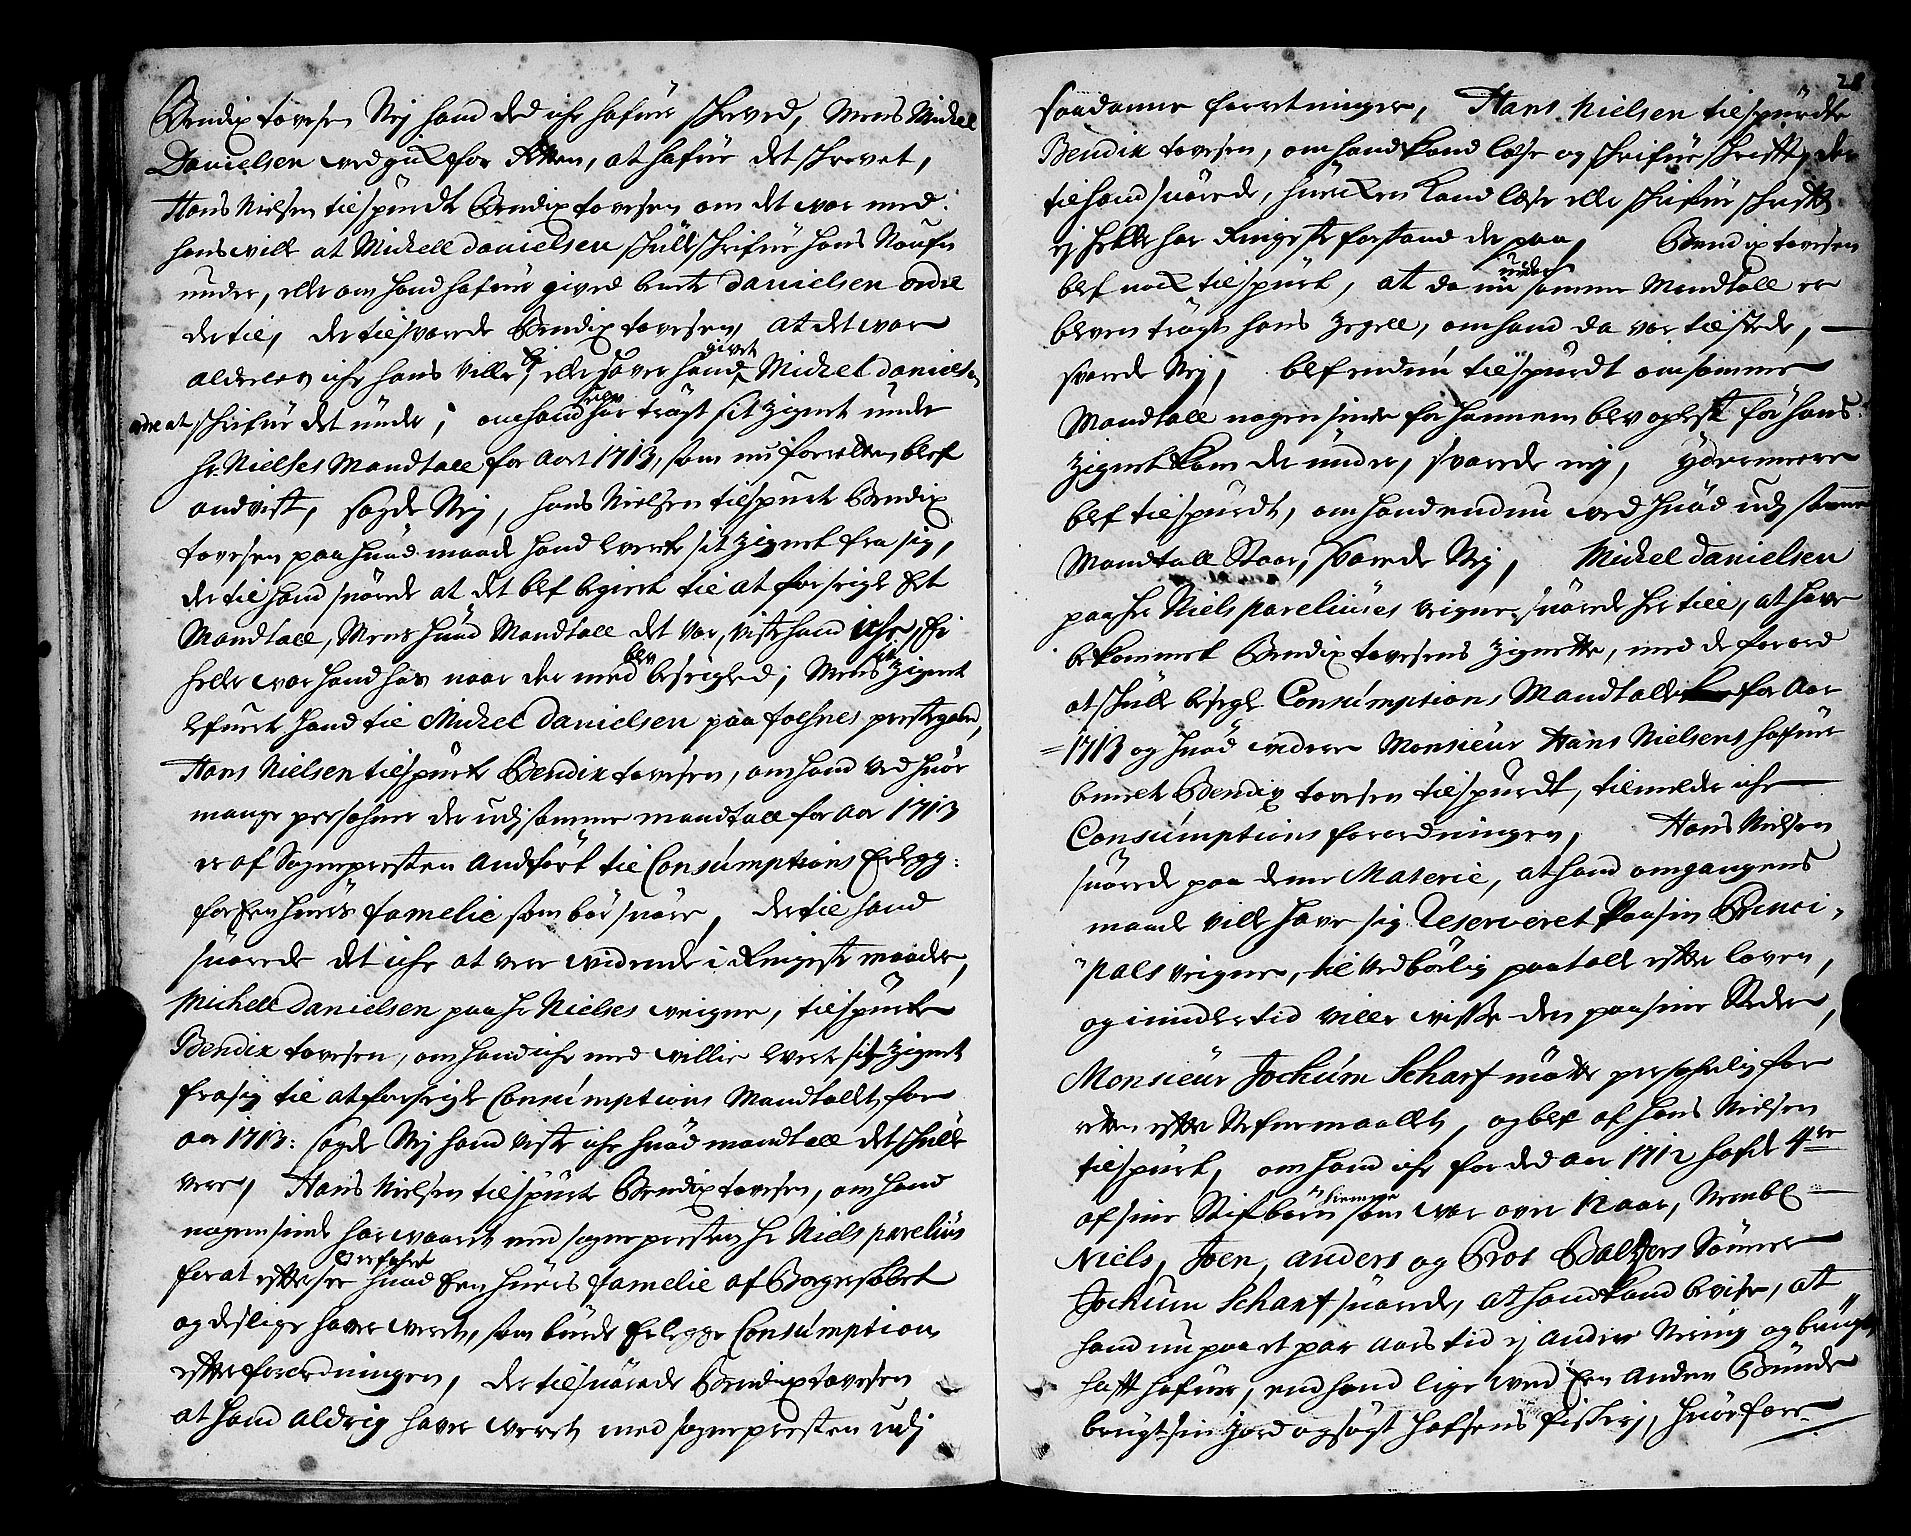 Bendix tovesen Nej hand ded iche hafuer schreved, Mens Michel
Danielsen vedgick for Retten, at hafue det schrevet,
Hans Nielsen tilspurdte Bendix tovesen om det var med
hans ville at Michell Danielsen schulle schrifue hans Naufn
under, eller om hand hafuer gived bente Danielsen ordre
dertil, der til svarede Bendix tovesen, at det var
alderlea iche hans ville, ej eller haver hand givet Michel Danielsen
ordre at schrifue det under; om hand selv har trögt sit Zignet under
hr Nielses Mandtall for Aar 1713, som nu for retten blef
andvist, sagde Nej, Hans Nielsen tilspurte Bendix
tovesen paa huad maade hand leverte sit Zignet fra sig,
der til hand suarede at det blef begiert til at forseigle Et
Mandtall, Mens huad Mandtall det var, viste hand iche, Ei
heller var hand hos naar der med blev beseigled; Mens sit Zignet
lefuert hand til Michel Danielsen paa foesnes prestegaard,
Hans Nielsen tilspurte Bendix tovesen, om hand ved huor
mange persohner der udj samme mandtall for Aar 1713
er af Sognepresten andfört til Consumptions Erlegg:
for Een huers famelie som bör suare, der til hand
suarede det iche at vere vidende i Ringeste maader,
Michell Danielsen paa hr Nielses veigne, tilspurte
Bendix tovesen, om hand iche med villie leverte sit Zignet
fra sig til at forseigle Consumptions Mandtallet for
aar 1713: sagde Nej hand viste iche huad mandtall det schulle
vere, Hans Nielsen tilspurte Bendix tovesen, om hand
nogensinde har vaaret med sognepresten hr Niels parelius
for at efttersee huad Een huers famelie af Bögesöbet
og deslige haver veret, som burde Erlegge Consumption
eftter forordningen, der til suarede Bendix tovesen
at hand aldrig haver veret med sognepresten udj
28
saadanne forretninger, Hans Nielsen tilspurdte
Bendix tovesen, om hand kand læse og schrifue schrifft, der
til hand suarede, huercken kand læse eller schrifue schrifft
ej heller har Ringeste forstand der paa, Bendix tovesen
blef nock tilspurt, at da nu under samme Mandtall er
bleven trögt hans Zegell, om hand da var tilstede,
svarede Nej, blef endnu tilspurdt om samme
Mandtall nogensinde for hannem blev oplest for hans
Zignet kom der under, svarede nej, ydermeere
blef tilspurdt, om hand endnu ved huad udj samme
Mandtall Staar, svarede Nej, Michel Danielsen
paa hr Niels parelius's veigne suarede her till, at have
bekommet Bendix tovesens Zignette, med de forord
at schulle besegle Consumptions Mandtallet for Aar
1713 og huad videre Monsieur Hans Nielsens hafuer
benente Bendix tovesen tilspurdt, tilmelder iche
Consumptions forordningen, Hans Nielsen
suarede paa denne Materie, at hand omgangens
maade ville have sig Reserveret paa sin Princi-
pals veigne, til vedbörlig paatall eftter loven,
og imidlertid ville viste den paa sine Steder,
Monsieur Jochum Scharf mötte persohnlig for
retten eftter Stefnemaallet, og blef af Hans Nielsen
tilspurt, om hand iche for ded aar 1712 hafde 4re
af sine Stifbörn hiemme som var over 12 aar, Nembl
Niels, Joen, Anders og Pros Baltzers Sönner
Jochum Scharf suarede, at hand kand bevise, at
hand nu paa et par aars tid ej anden Nering og brug
hafft hafuer, end hand lige ved Een anden Bunde
brugt sin Jord og sögt hafsens fischerj, huorfore